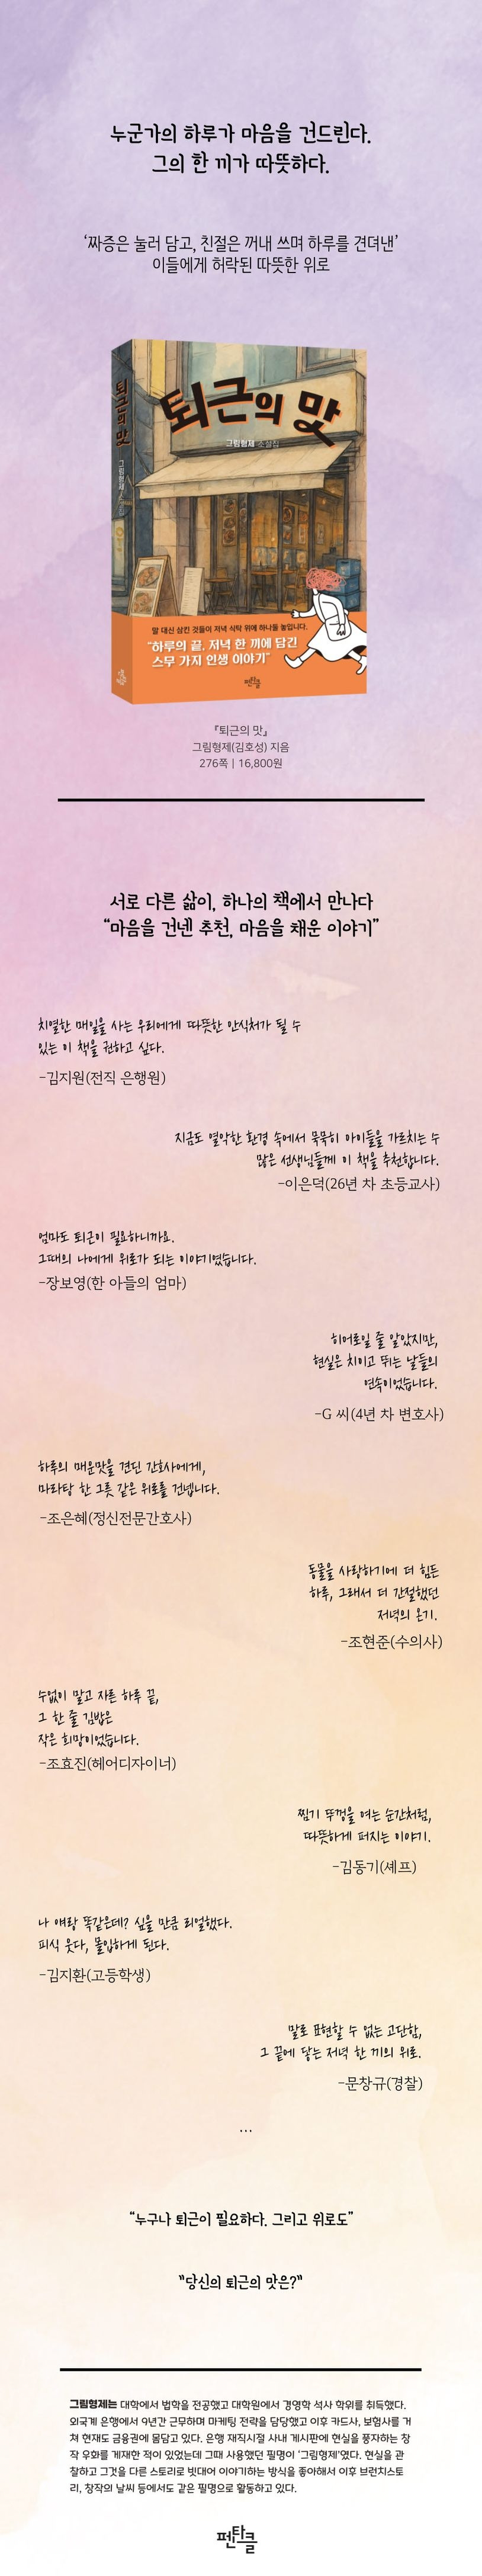 누군가의 하루가 마음을 건드린다.
그의 한 끼가 따뜻하다.
‘짜증은 눌러 담고, 친절은 꺼내 쓰며 하루를 견뎌낸’
이들에게 허락된 따뜻한 위로
퇴근의 맛
그림형제 소설집
퇴근의 맛
그림형제 소설집
말 대신 삼킨 것들이 저녁 식탁 위에 하나둘 놓입니다.
“하루의 끝, 저녁 한 끼에 담긴
스무 가지 인생 이야기”
펜타클
펜타클
『퇴근의 맛』
그림형제(김호성) 지음
276쪽 | 16,800원
서로 다른 삶이, 하나의 책에서 만나다
“마음을 건넨 추천, 마음을 채운 이야기”
치열한 매일을 사는 우리에게 따뜻한 안식처가 될 수
있는 이 책을 권하고 싶다.
-김지원(전직 은행원)
지금도 열악한 환경 속에서 묵묵히 아이들을 가르치는 수
많은 선생님들께 이 책을 추천합니다.
-이은덕(26년 차 초등교사)
엄마도 퇴근이 필요하니까요.
그때의 나에게 위로가 되는 이야기였습니다.
-장보영(한 아들의 엄마)
히어로일 줄 알았지만,
현실은 치이고 뛰는 날들의
연속이었습니다.
-G 씨(4년 차 변호사)
하루의 매운맛을 견딘 간호사에게,
마라탕 한 그릇 같은 위로를 건넵니다.
-조은혜(정신전문간호사)
동물을 사랑하기에 더 힘든
하루, 그래서 더 간절했던
저녁의 온기.
-조현준(수의사)
수없이 말고 자른 하루 끝,
그 한 줄 김밥은
작은 희망이었습니다.
-조효진(헤어디자이너)
찜기 뚜껑을 여는 순간처럼,
따뜻하게 퍼지는 이야기.
-김동기(셰프)
나 얘랑 똑같은데? 싶을 만큼 리얼했다.
피식 웃다, 몰입하게 된다.
-김지환(고등학생)
말로 표현할 수 없는 고단함,
그 끝에 닿는 저녁 한 끼의 위로.
-문창규(경찰)
...
“누구나 퇴근이 필요하다. 그리고 위로도”
"당신의 퇴근의 맛은?"
그림형제는 대학에서 법학을 전공했고 대학원에서 경영학 석사 학위를 취득했다.
외국계 은행에서 9년간 근무하며 마케팅 전략을 담당했고 이후 카드사, 보험사를 거
쳐 현재도 금융권에 몸담고 있다. 은행 재직시절 사내 게시판에 현실을 풍자하는 창
작 우화를 게재한 적이 있었는데 그때 사용했던 필명이 ‘그림형제’였다. 현실을 관
찰하고 그것을 다른 스토리로 빗대어 이야기하는 방식을 좋아해서 이후 브런치스토
리, 창작의 날씨 등에서도 같은 필명으로 활동하고 있다.
펜타클